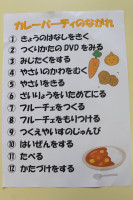 カレーパーティのながれ
① きょうのはなしをきく
② つくりかたの DVD をみる
③ みじたくをする
④ やさいのかわをむく
⑤ やさいをきる
⑥ ざいりょうをいためてにる
⑦ フルーチェをつくる
⑧ フルーチェをもりつける
⑨ つくえやいすのじゅんび
⑩ はいぜんをする
⑪ たべる
⑫ かたづけをする